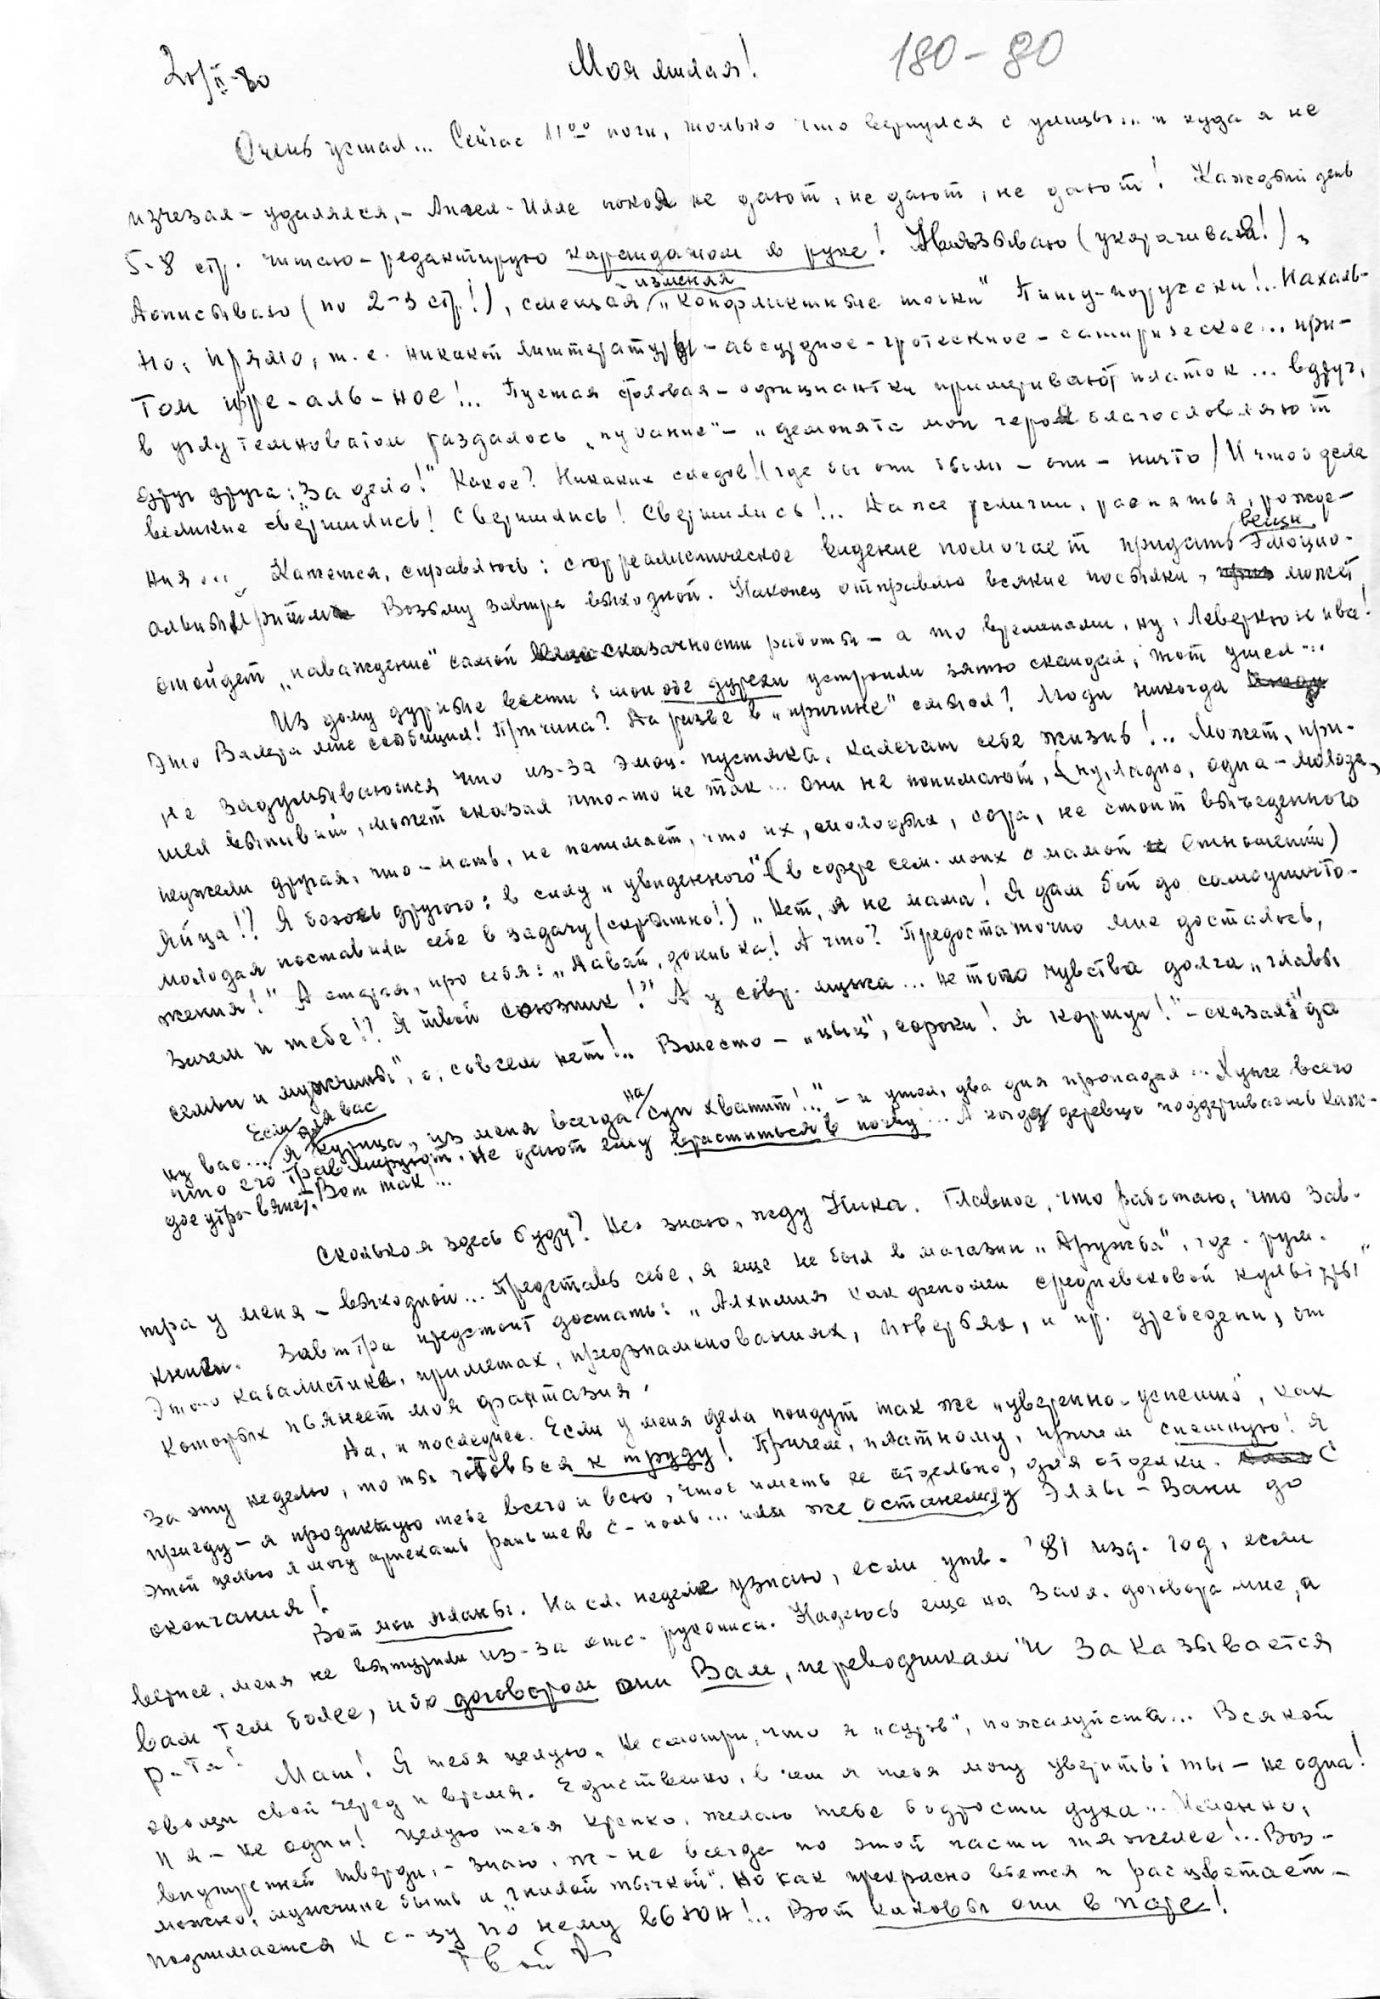 20/II-80
Моя милая!
180-80
Очень устал... Сейчас 11⁰⁰ ночи, только что вернулся с улицы... и куда я не
изчезал - удалялся, - Ангел-Илле покоя не дают, не дают, не дают! Каждый день
5-8 стр. читаю - редактирую карандашом в руке! (укорачивая!),
Дописываю (по 2-3 стр!), смещая - изменяя "конфликтные точки" Пишу-по русски!.. Нахаль-
но, прямо, т.е. никакой литературы - абсурдное - гротескное - сатирическое... при-
том ирре-аль-ное!.. Пустая столовая - официантки примеривают платок... вдруг,
в углу темноватом раздалось " - "демонята мои героя благословляют
друг друга: За дело!" Какое? Никаких следов! (где бы они были - они - ничто / И дела
великие свершились! Свершились! Свершились!.. Даже религии, распятья, рожде-
ния... Кажется, справляюсь: сюрреалистическое видение помогает придать вещи эмоцио-
альный ритм Возьму завтра выходной. Наконец отправлю всякие посылки, может
отойдет "наваждение" самой сказачности работы - а то временами, ну, Леверкюн и ива!
Из дому дурные вести: мои обе дурехи устроили зятю скандал, тот ушел...
Это Валера мне сообщил! Причина? Да разве в "причине" смысл? Люди никогда
не задумываются что из-за эмоц. пустяка, калечат себе жизнь!.. Может, при-
шел выпивши, может сказал что-то не так... они не понимают, (ну, ладно, одна - молодая,
неужели другая, что - мать, не понимает, что их, молодых, сора, не стоит выеденного
яйца!? Я боюсь другого: в силу "увиденного" (в сфере сем. моих с мамой отношений)
молодая поставила себе в задачу (скрытно!) "Нет, я не мама! Я дам бой до самоуничто-
жения!" А старая, про себя: "Давай, доченька! А что? Предостаточно мне досталось,
Зачем и тебе!? Я твой союзник!?" А у совр. мужа... не того чувства долга "главы
семьи и мужчины", о, совсем нет!.. Вместо - "цыц", сороки! Я кормчий!" - сказал: "да
ну вас... Если для вас я курица, из меня всегда на суп хватит!.." - и ушел, два дня пропадал... Хуже всего
что его травмируют. Не дают ему враститься в почву... А когда деревцо поддергивать каж-
дое утро - вянет. Вот так!..
Сколько я здесь буду? Не знаю, жду Ника. Главное, что работаю, что зав-
тра у меня - выходной... Представь себе, я еще не был в магазин "Дружба", где рум.
книги. Завтра предстоит достать: "Алхимия как феномен средневековой культуры"
Это о кабалистике, приметах, предзнаменованиях, поверьях, и пр. дребедени, от
которых пьянеет моя фантазия.
Да, и последнее. Если у меня дела пойдут так же "уверенно-успешно", как
за эту неделю, то ты готовься к труду! Причем, платному, причем спешную! Я
приеду - я продиктую тебе всего и всю, чтоб иметь ее отдельно, для отделки. С
этой целью я могу приехать раньше в С-поль... или же останемся у Эллы - Вани до
окончания!
Вот мои планы. На сл. неделе узнаю, если утв. '81 изд. год, если
вернее, меня не вытурили из-за отс. рукописи. Надеюсь еще на Заля. договора мне, а
вам тем более, ибо договором они Вам, переводчикам и заказывается
р-та!
Маш! Я тебя целую. Не смотри, что я "суров", пожалуйста... Всякой
овощи свой черед и время. Единственно, в чем я тебя могу уверить: ты - не одна!
И я - не один! Целую тебя крепко, желаю тебе бодрости духа... Именно,
внутренней тверди, - знаю, ж-не всегда по этой части тяжелее!.. Воз-
можно, мужчине быть и "гнилой тычкой". Но как прекрасно вьется и расцветает -
поднимается к с-цу по нему вьюн!.. Вот каковы они в паре!
Твой